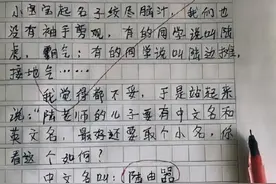 小宝宝起名子绞尽脑汁，我们也
没有袖手旁观，有的同学说叫陆
虎，霸气；有的同学说叫陆边摊，
接地气……
我觉得都不妥，于是站起来
说：“陆老师的儿子要有中文名和
英文名，最好还要取个小名，你
看这个如何？
中文名叫：陆由器